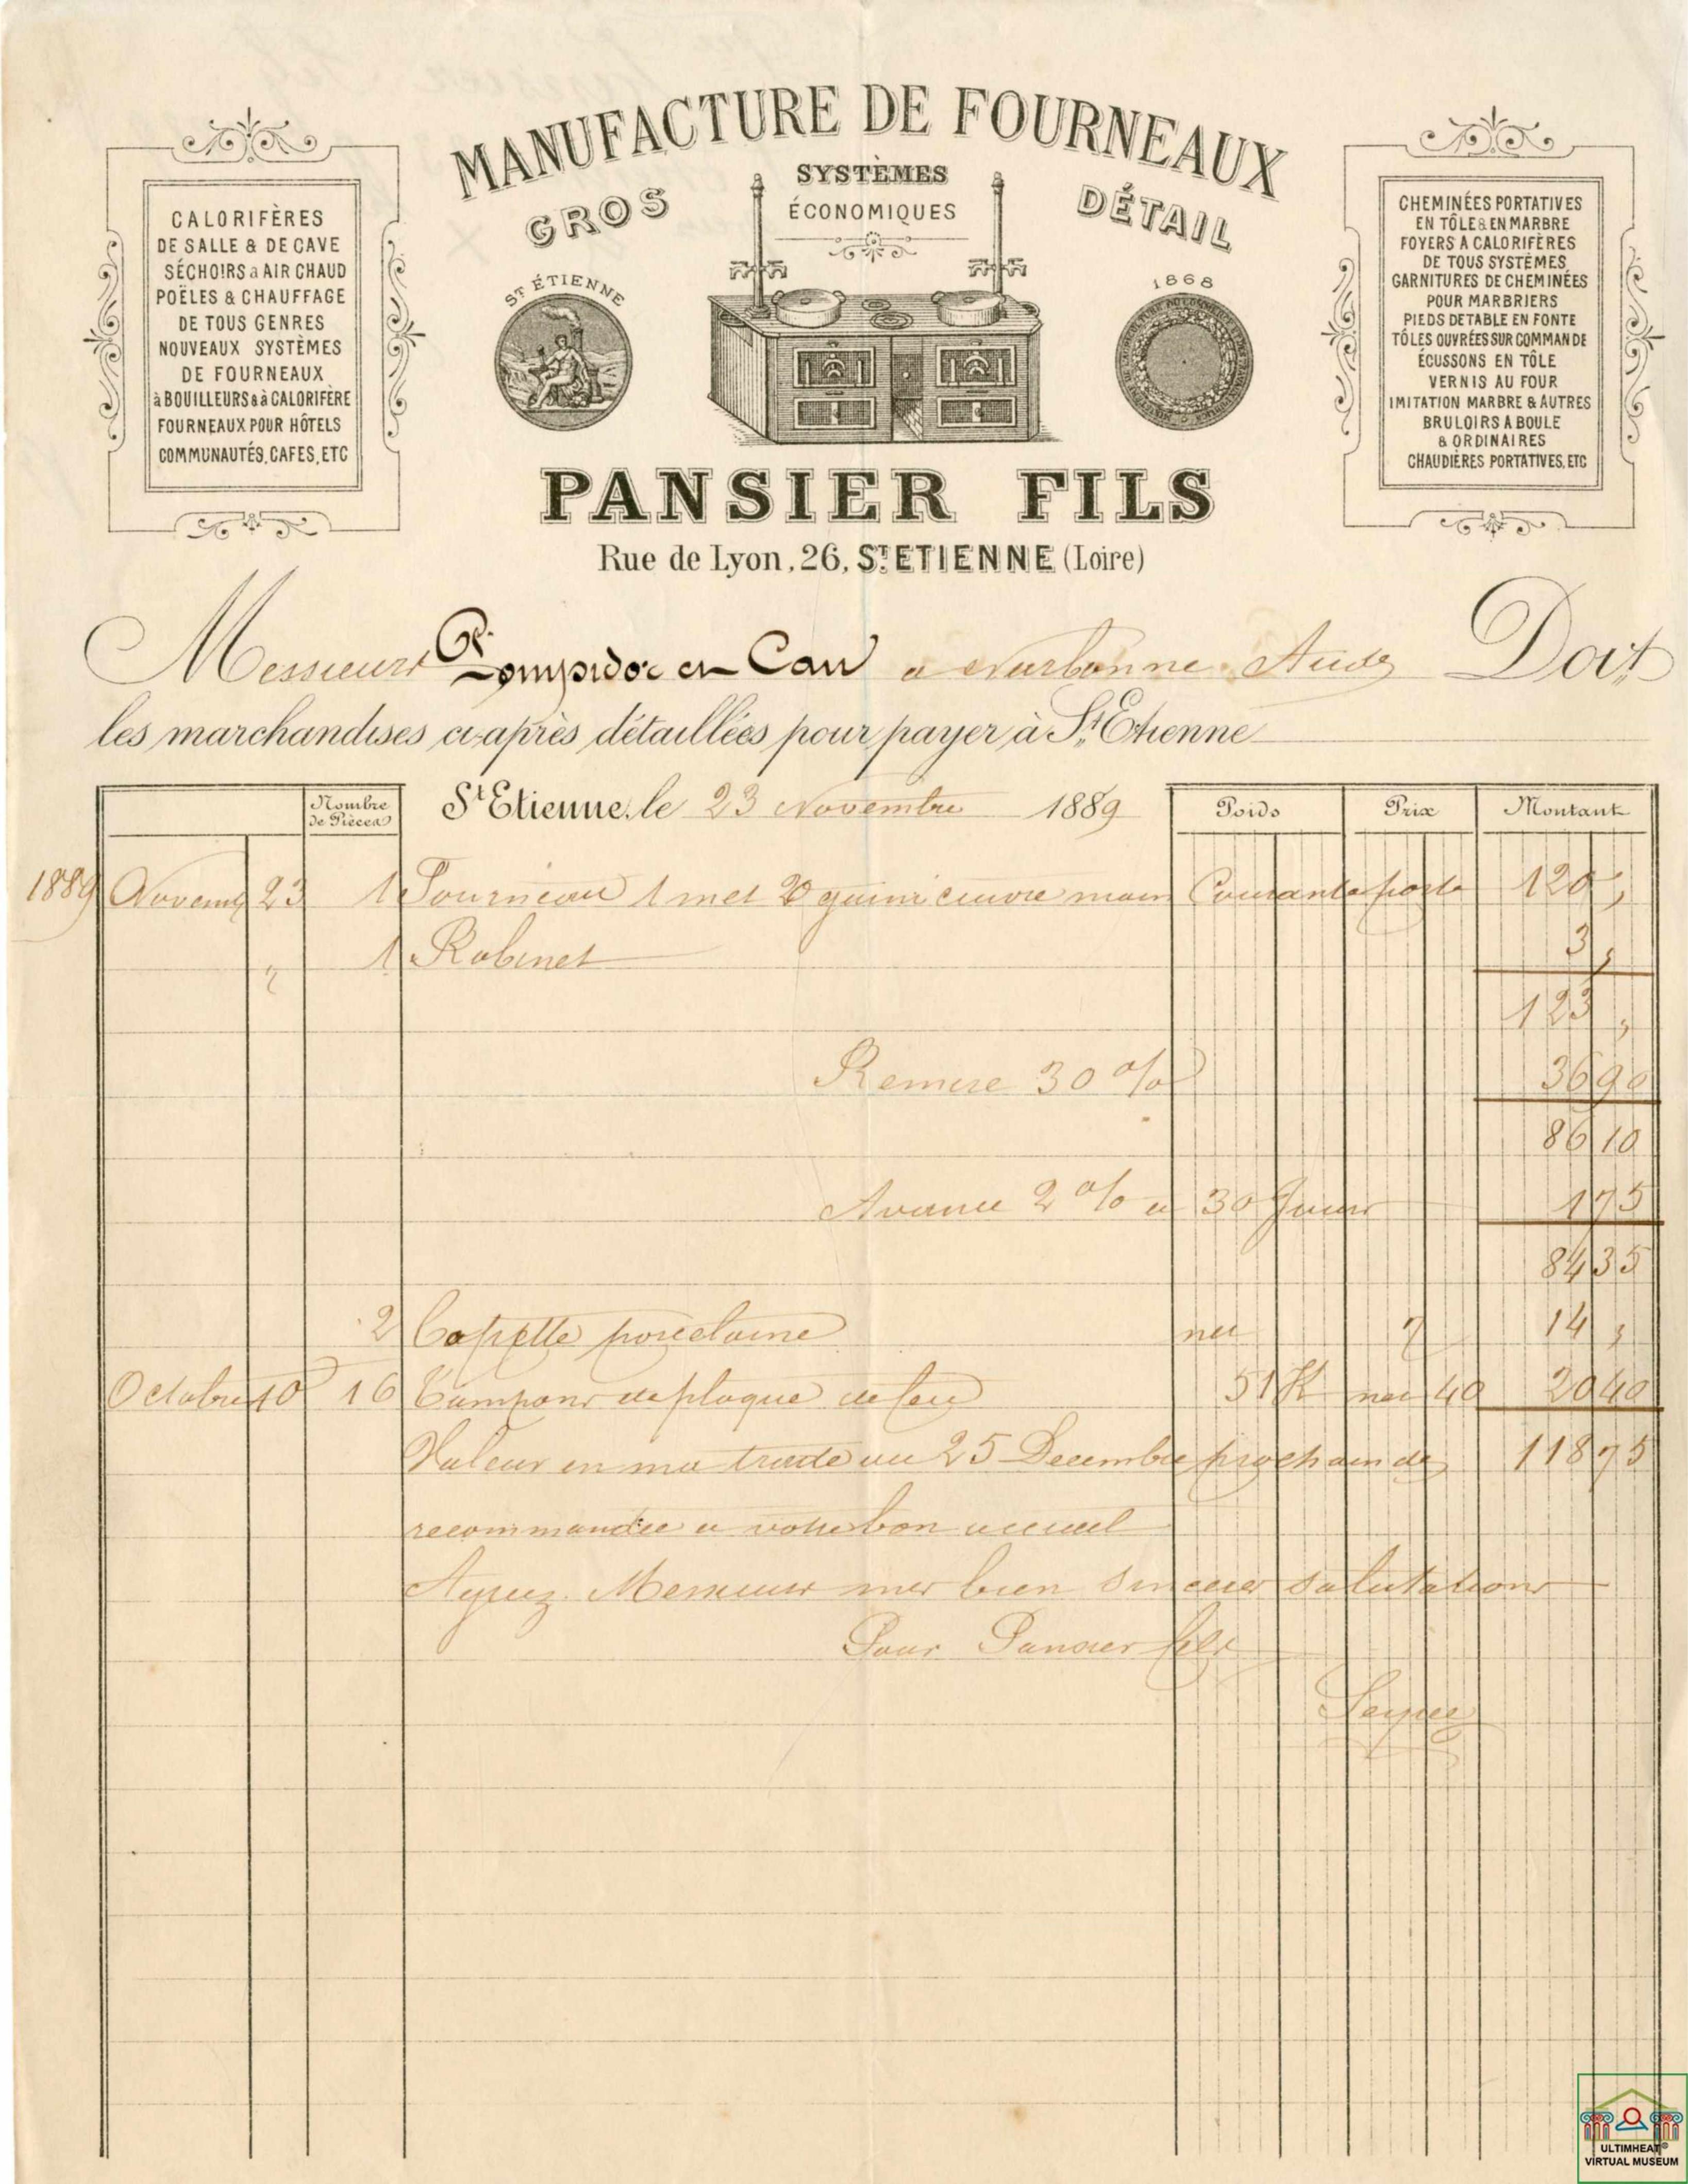 MANUFACTURE DE FOURNEAUX
GROS
SYSTÈMES
ÉCONOMIQUES
DÉTAIL
CALORIFÈRES
DE SALLE & DE CAVE
SÉCHOIRS a AIR CHAUD
POËLES & CHAUFFAGE
DE TOUS GENRES
NOUVEAUX SYSTÈMES
DE FOURNEAUX
à BOUILLEURS & à CALORIFÈRE
FOURNEAUX POUR HÔTELS
COMMUNAUTÉS, CAFES, ETC
ST ÉTIENNE
1868
CHEMINÉES PORTATIVES
EN TÔLE & EN MARBRE
FOYERS A CALORIFÈRES
DE TOUS SYSTÈMES
GARNITURES DE CHEMINÉES
POUR MARBRIERS
PIEDS DE TABLE EN FONTE
TÔLES OUVRÉES SUR COMMANDE
ÉCUSSONS EN TÔLE
VERNIS AU FOUR
IMITATION MARBRE & AUTRES
BRULOIRS A BOULE
& ORDINAIRES
CHAUDIÈRES PORTATIVES, ETC
PANSIER FILS
Rue de Lyon, 26, ST ETIENNE (Loire)
Messieurs a Narbonne Aude Doit
les marchandises ci-après détaillées pour payer à St Etienne
Nombre de Pièces St Etienne, le 23 Novembre 1889 Poids Prix Montant
1889 23 1 Fourneau 1 met 20 cuivre main Courante 120 "
" 1 Robinet 3 "
123 "
Remise 30 % 36 90
86 10
Avance 2 % a 30 Jours 1 75
84 35
2 porcelaine net 7 14 "
Octobre 10 16 Tampons de plaque de feu 51 K net 40 20 40
Valeur en ma traite au 25 Decembre prochain de 118 75
recommandée a votre bon acceuil
Agreez Messieurs mes bien sinceres salutations
Pour Pansier fils
ULTIMHEAT®
VIRTUAL MUSEUM